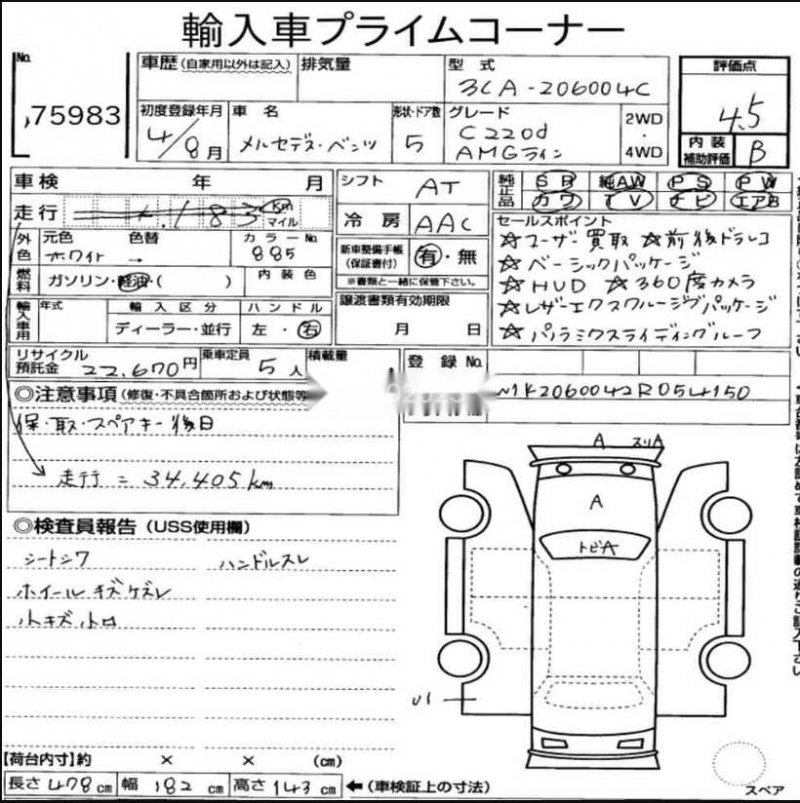 輸入車プライムコーナー
No.
75983
車歴(自家用以外は記入)
排気量
型式
3CA-206004C
評価点
4.5
初度登録年月
4/8月
車名
メルセデス・ベンツ
形状・ドア数
5
グレード
C220d
AMGライン
2WD
・
4WD
内装
補助評価
B
車検 年 月
シフト
AT
純正品
SR 純AW PS PW
カワ TV ナビ エアB
走行
km
マイル
冷房
AAC
セールスポイント
☆ユーザー買取 ☆前後ドラレコ
☆ベーシックパッケージ
☆HUD ☆360度カメラ
☆レザーエクスクルーシブパッケージ
☆パノラミクスライディングルーフ
外色
元色
ホワイト
色替
→
カラーNo.
885
新車整備手帳
(保証書付)
有・無
※書類と一緒に保管下さい。
燃料
ガソリン・軽油・( )
内装色
譲渡書類有効期限
月 日
輸入車用
年式
輸入区分
ディーラー・並行
ハンドル
左・右
リサイクル
預託金
22,670円
乗車定員
5人
積載量
登録No.
W1K2060042R054150
◎注意事項(修復・不具合箇所および状態等
保・取・スペアキー後日
走行=34,405km
◎検査員報告(USS使用欄)
シートシワ ハンドルスレ
ホイールキズケズレ
小キズ小凹
A スリA
A
トビA
U1
【荷台内寸】約 × × (cm)
長さ478cm 幅182cm 高さ143cm ←(車検証上の寸法)
スペア